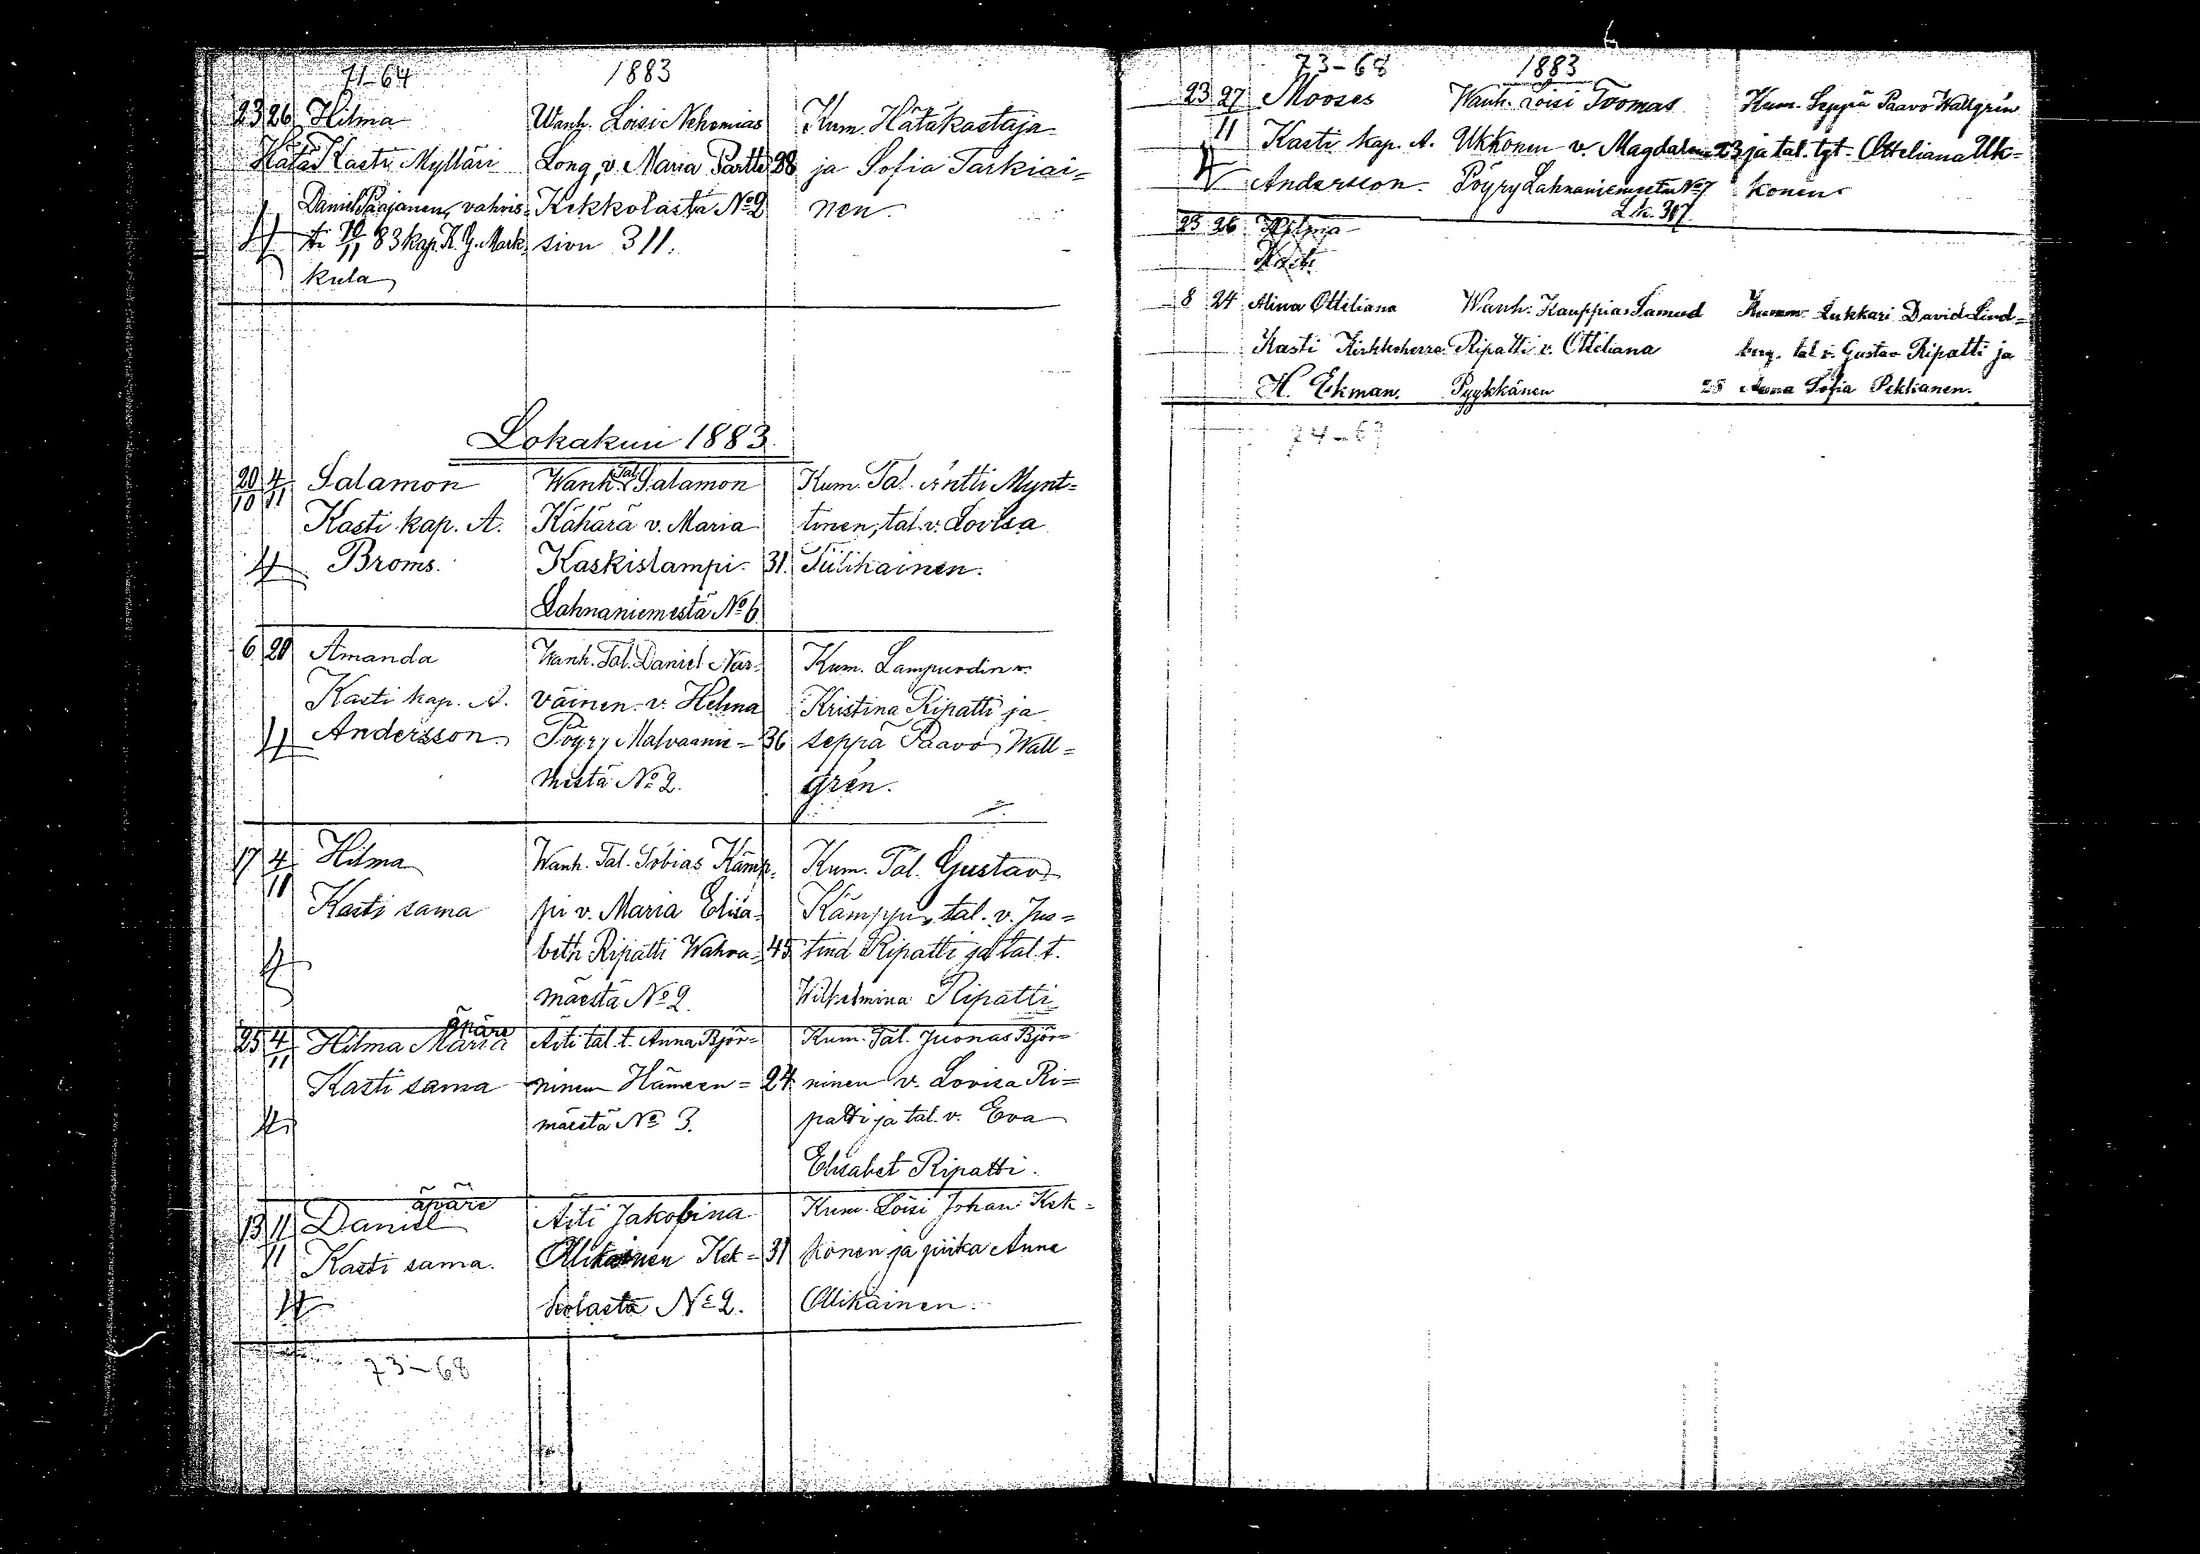 71-64 1883
23 26 Hilma Wanh. Loisi Nehemias Kum. Hätäkastaja
Hätä Kasti Mylläri Long, v. Maria Partti 28 ja Sofia Tarkiai=
Daniel Paajanen, vahvis= Kekkolasta No 2 nen.
ti 10/11 83 kap. K. G. Mark= sivu 311.
kula
Lokakuu 1883.
20/10 4/11 Salamon Wanh. Tal. Salamon Kum. Tal. Antti Mynt=
Kasti kap. A. Kähärä v. Maria tinen, tal. v. Lovisa
Broms. Kaskislampi. 31. Tiilikainen.
Lahnaniemestä No 6
6 28 Amanda Wanh. Tal. Daniel När= Kum. Lampuodin v.
Kasti kap. A. väinen v. Helena Kristina Ripatti ja
Andersson. Pöyry Malvaanie= 36 seppä Paavo Wall=
mestä No 2. grén.
17 4/11 Hilma Wanh. Tal. Tobias Kämp= Kum. Tal. Gustav
Kasti sama pi v. Maria Elisa= Kämppi, tal. v. Jus=
beth Ripatti Wahva= 45 tina Ripatti ja tal. t.
mäestä No 2. Wilhelmina Ripatti
äpäre
25 4/11 Hilma Maria Äiti tal. t. Anna Björ= Kum. Tal. Juonas Björ=
Kasti sama ninen Hämeen= 24 ninen v. Lovisa Ri=
mäestä No 3. patti ja tal. v. Eva
Elisabet Ripatti.
äpäre
13 11/11 Daniel Äiti Jakobina Kum. Loisi Johan Kek=
Kasti sama. Ollikainen Kek= 31 konen ja piika Anna
kolasta No 2. Ollikainen.
73-68
73-68 1883
23 27/11 Mooses Wanh. Loisi Toomas Kum. Seppä Paavo Wallgrén
Kasti kap. A. Ukkonen v. Magdalena 23 ja tal. tyt. Otteliana Uk=
Andersson. Pöyry Lahnaniemestä No 7 konen.
Lk. 317
23 26 Hilma
Kasti
8 24 Alina Otteliana Wanh. Kauppias Samuel Kumm. Lukkari David Lind=
Kasti Kirkkoherra Ripatti v. Otteliana berg. tal. v. Gustav Ripatti ja
H. Ekman. Pyykkänen 28 Anna Sofia Pekkanen.
74-69